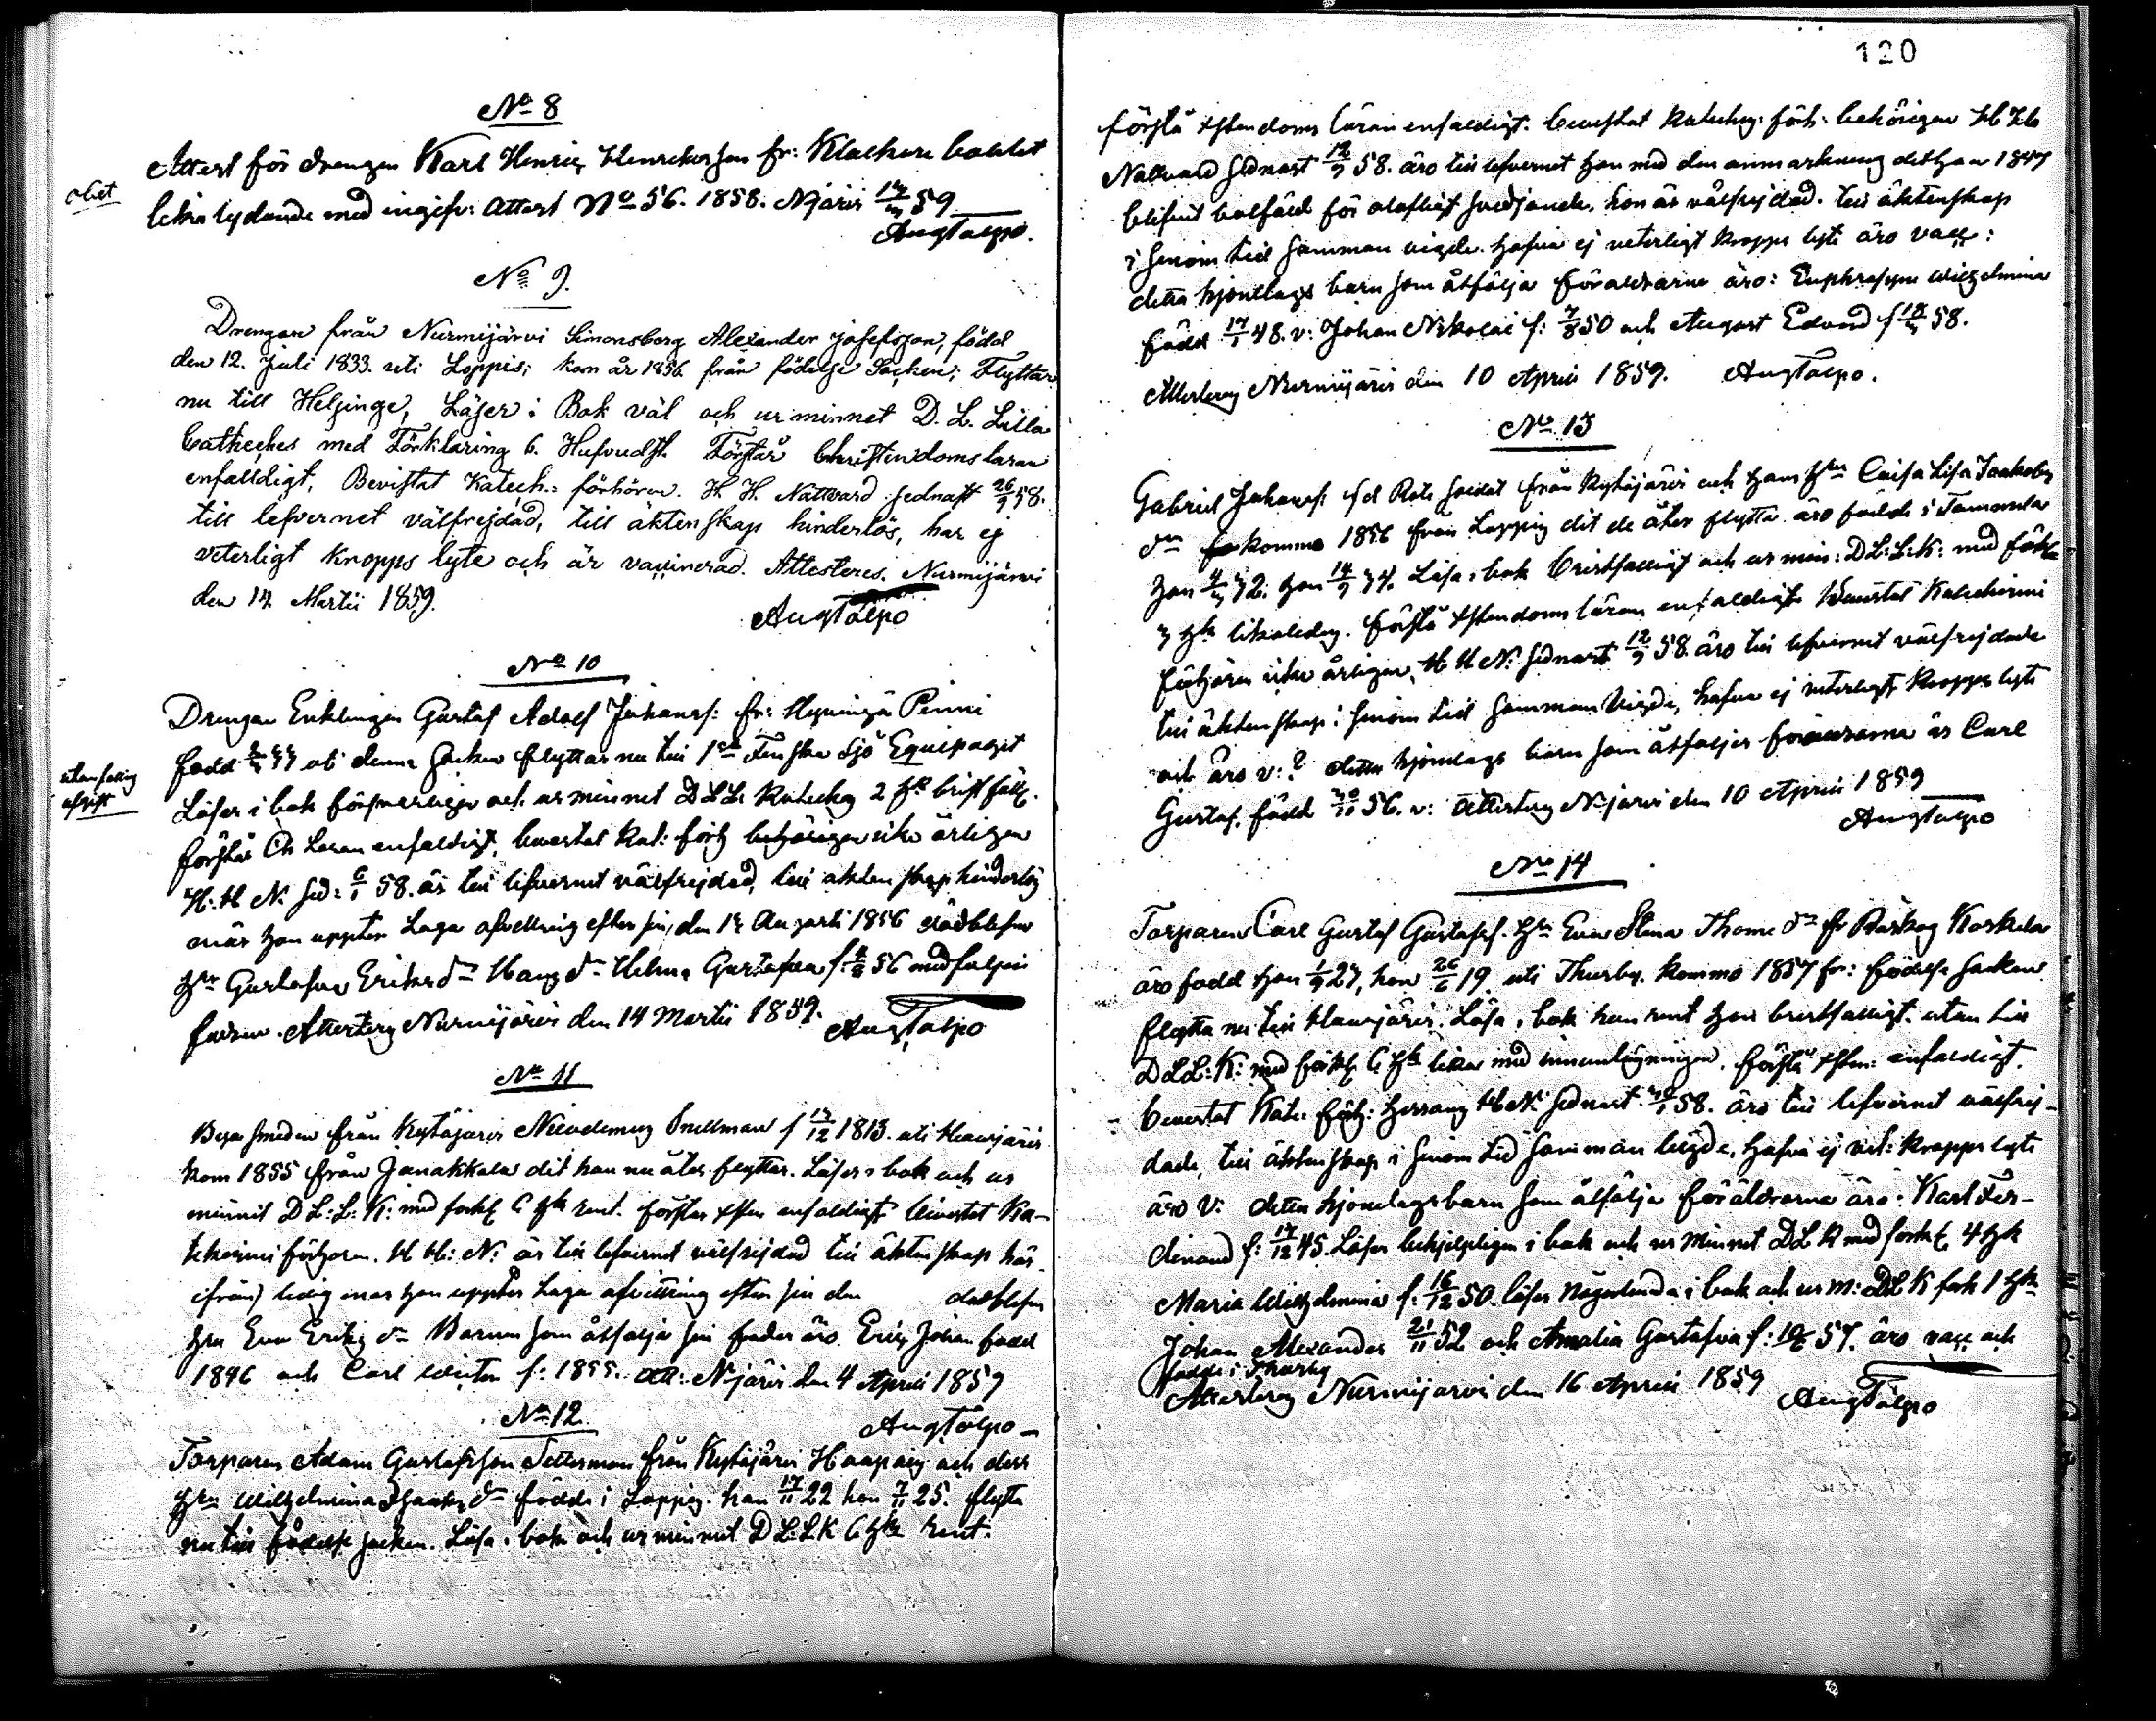 No 8
Attest för drengen Karl Henric Henriksson fr: Klackare bohlet
lika lydande med ingifv: Attest No 56. 1858. Njärvi 14/3 59
AugTalpo.
No 9.
Drengen från Nurmijärvi Simonsberg Alexander Josefsson, född
den 12. Juli 1833. uti Loppis; kom år 1856 från födelse Socken; Flyttar
nu till Helsinge, Läser i Bok väl och ur minnet D. L. Lilla
Catheches med Förklaring 6. Hufvudst. Förstår Christendomsläran
enfalldigt, Bevistat Katech: förhören. H. H. Nattvard sednast 26/9 58.
till lefvernet välfrejdad, till äktenskap hinderlös, har ej
veterligt kropps lyte och är vaccinerad. Attesteres. Nurmijärvi
den 14 Martii 1859.
AugTalpo
No 10
Drengen Enklingen Gustaf Adolf Johanss: fr:
född uti denna Socken flyttar nu till 1sta Finska Sjö Equipaget
Läser i bok försvarligen och ur minnet D L L Katechs 2 Hst bristfäll.
förstår Ch Läran enfaldigt, bevistat Kat: förh årligen
H: H N. sed: 6/1 58. är till lefvernet välfrejdad, till äktenskap hinderlös
när han uppter Laga afvittring efter sin, den Augusti 1856 dödblefne
Hru Gustafva Eriksdr Hans dr Helena Gustafva 56 medföljer
fadren. Attesteras Nurmijärvi den 14 Martii 1859.
AugTalpo
No 11
från Kytäjärvi Nicodemus Snellman f 13/12 1813. uti
kom 1855 från Janakkala dit han nu åter flyttar. Läser i bok och ur
minnet D L: L: K: med förkl 6 Hst rent. förstår enfaldigt bevistat Ka-
tekismi förhören. H H: N: är till lefvernet välfrejdad till äktenskap här-
ifrån) ledig när han uppter Laga afvittring efter sin den dödblefne
Hru Eva Eriks dr Barnen som åtfölja sin fader äro Eric Johan född
1846 och Carl f: 1855. Att: Njärvi den 4 April 1859
AugTalpo
No 12.
Torparen Adam Gustafsson från Kytäjärvi och dess
Hru Wilhelmina Isaaks dr födde i Loppis. han 17/11 22 hon 7/11 25. flytta
nu till födelse socken. Läsa i bok och ur minnet D L: L K 6 Hst rent.
120
förstå Xstendoms läran enfaldigt. bevistat Katechs: förh: H H
Nattvard sednast 12/9 58. äro till lefvernet han med den anmärkning det han 1847
blifvit bötfäld för olofligt svedjande, hon är välfrejdad. till äktenskap
i sinom tid samman vigde. hafva ej veterligt kropps lyte äro vacc:
detta hjonelags barn som åtfölja föräldrarne äro: Euphrosyne Wilhelmina
född 17/1 48. v: Johan Nikolai f: 7/8 50 och August Edvard f 18/3 58.
Attesteras Nurmijärvi den 10 April 1859. AugTalpo.
No 13
Gabriel Johanss: fd Rote Soldat från Kytäjärvi och hans Hru Caisa Lisa Jacobs
dr komna 1856 från Loppis dit de åter flytta äro födde i Tammela
han 32. hon 14/9 34. Läsa i bok bristfälligt och ur min: D L: L: K: med förkl
3 Hst likaledes. förstå Xstendoms läran enfaldigt bevistat Katechismi
förhören icke årligen, H H N: sednast 12/9 58. äro till lefvernet välfrejdade
till äktenskap i sinom tid samman vigde, hafva ej veterligt kropps lyte
och äro v:? detta hjonelags barn som åtföljer föräldrarna är Carl
Gustaf. född 30/10 56. v: Attesteras N-järvi den 10 April 1859
AugTalpo
No 14
Torparen Carl Gustaf Gustafss. Hru Eva Stina Thome dr fr Koskela
äro född han 1/9 27, hon 26/6 19 uti Thusby. komna 1857 fr: födelse socken
flytta nu till Hausjärvi. Läsa i bok hon rent han bristfälligt. utan till
D L L: K: med förkl 6 Hst lika med innanläsningen. förstå Xsten: enfaldigt.
bevistat Kate: förh: H N: sednast 58. äro till lefvernet välfrej-
dade, till äktenskap i sinom tid samman vigde, hafva ej vet: kropps lyte
äro V: detta hjonelags barn som åtfölja föräldrarna äro: Karl Fer-
dinand f: 17/12 45. Läser behjelpligen i bok och ur minnet D L K med förkl 4 Hst
Maria Wilhelmina f: 16/12 50. läser någorlunda i bok och ur m: D L K förk 1 Hst
Johan Alexander 21/11 52 och Amalia Gustafva f: 57. äro vacc och
födde i Thusby
Attesteras Nurmijärvi den 16 April 1859 AugTalpo